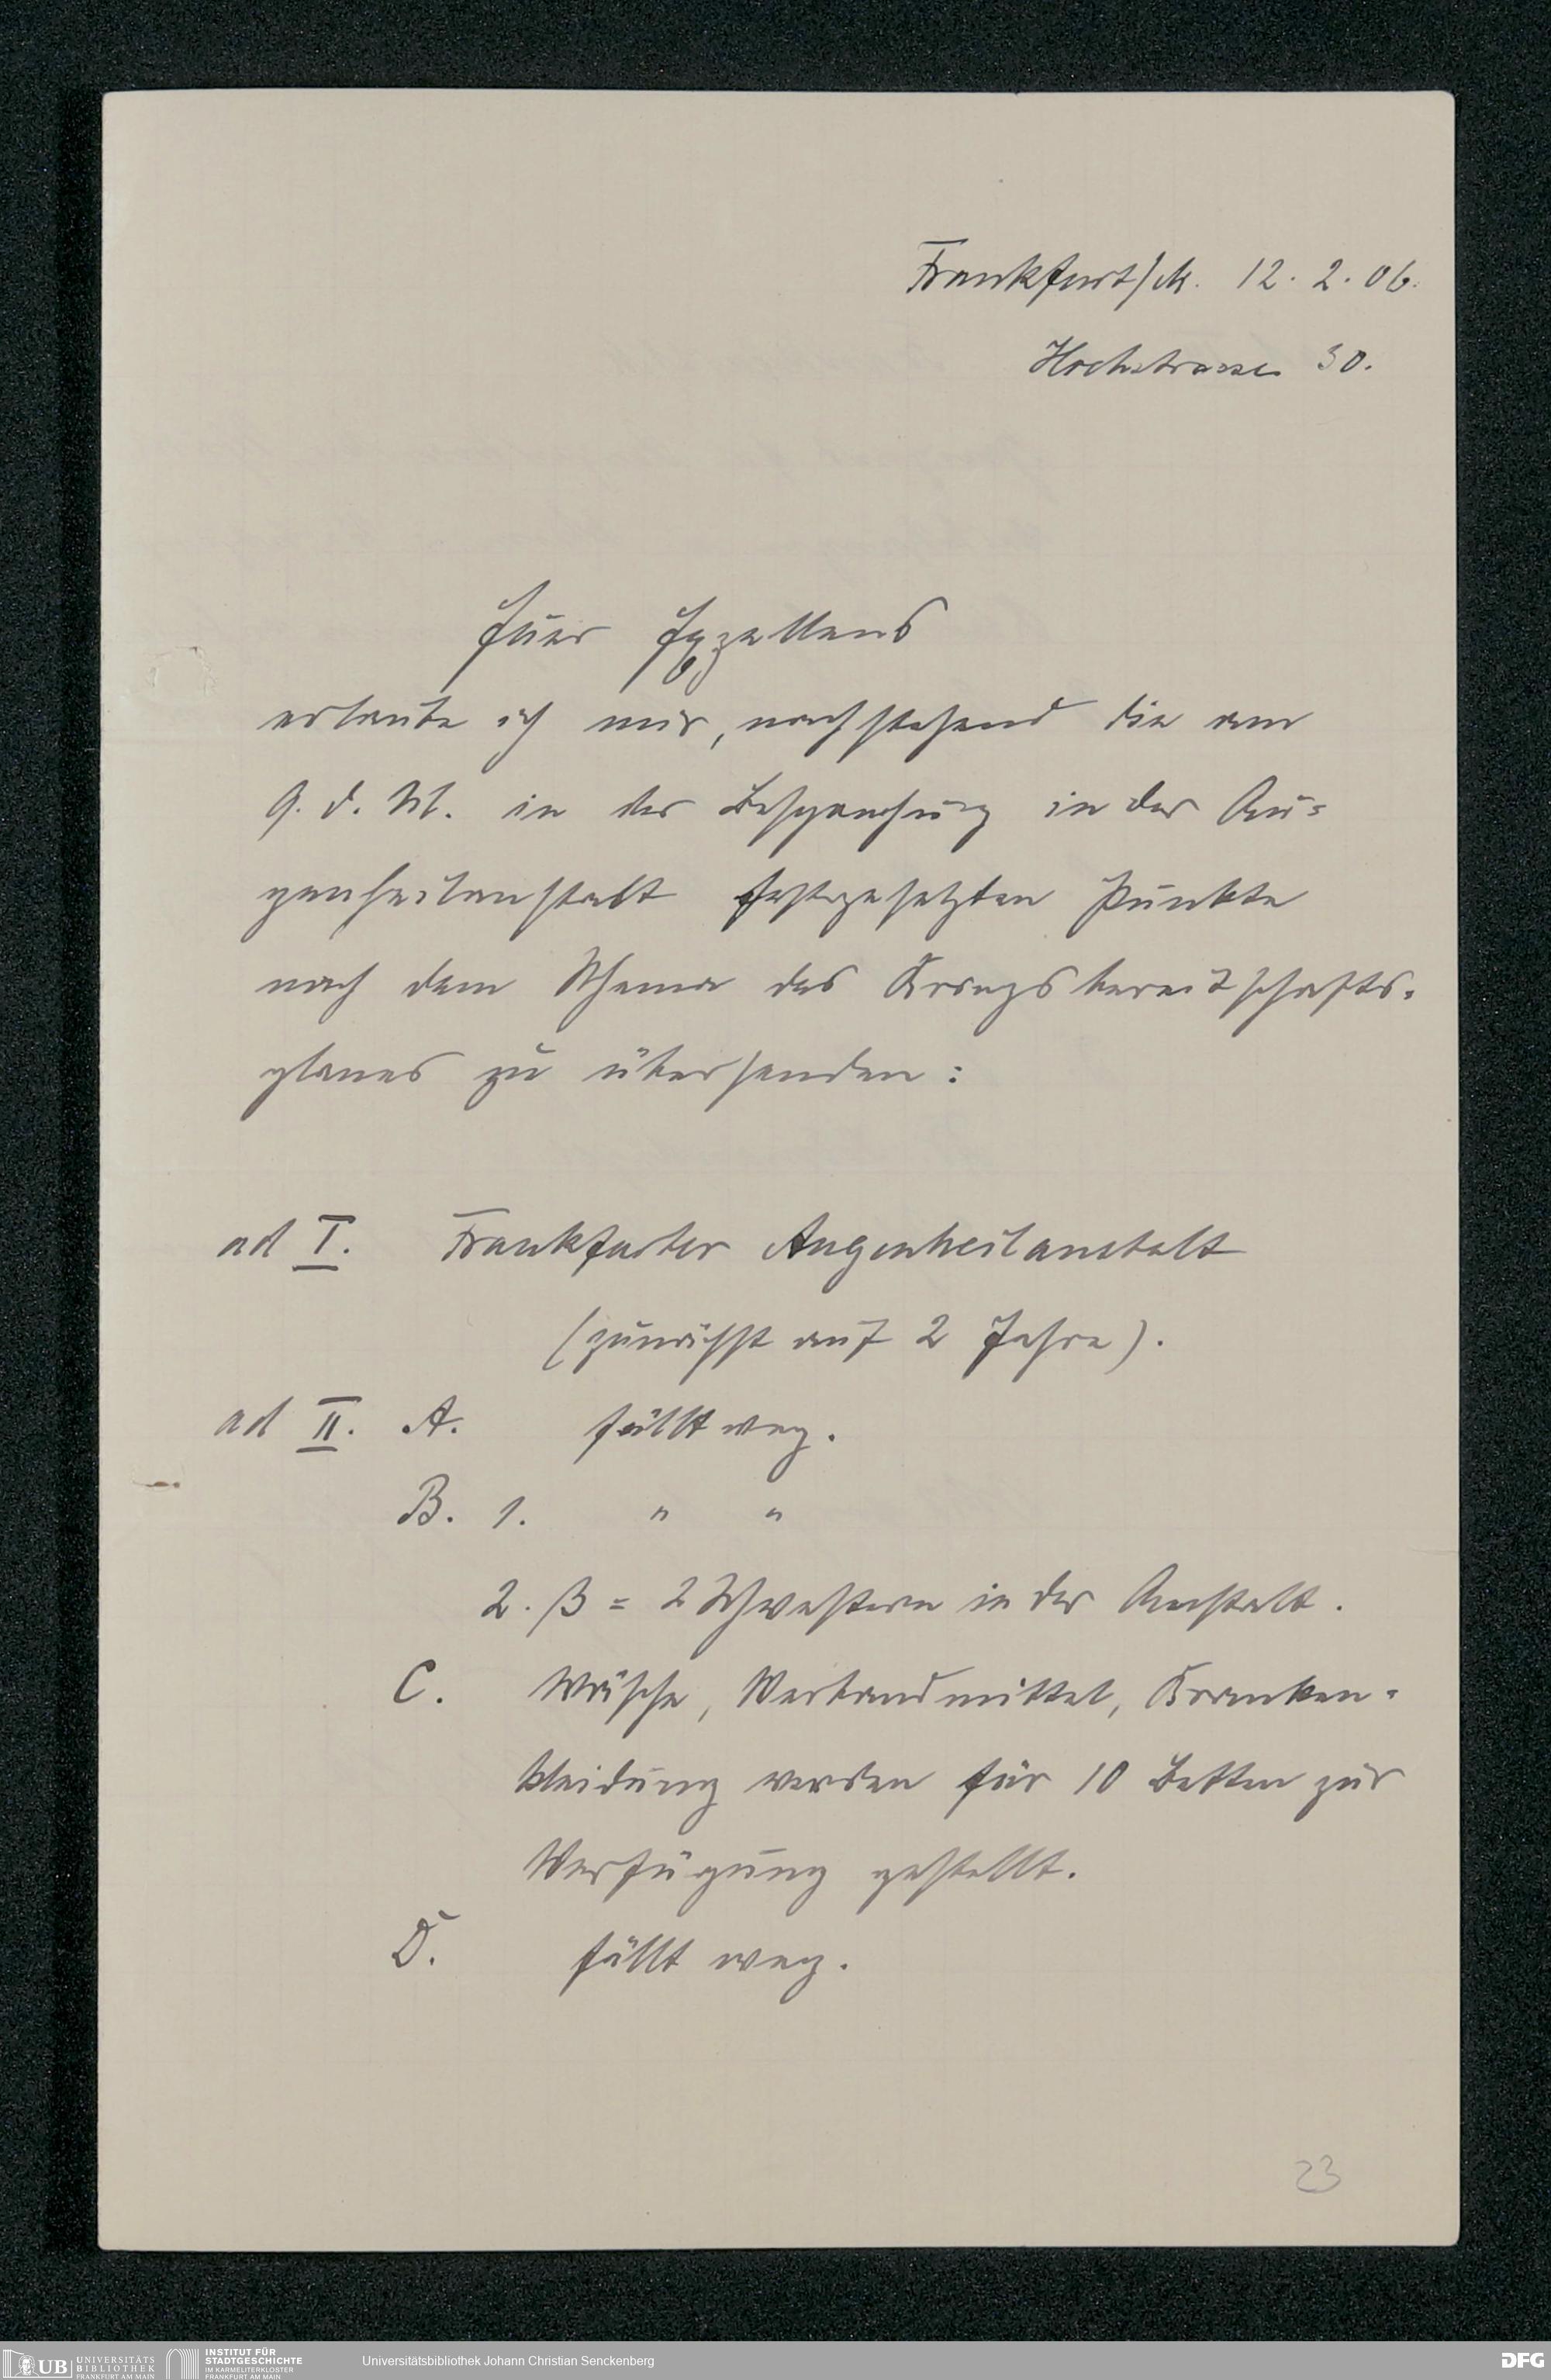 Frankfurt/M. 12. 2. 06.
Hochstrasse 30.
Euer Exzellenz
erlaube ich mir, nachstehend die am
9. d. M. in der Besprechung in der Au=
genheilanstalt festgesetzten Punkte
nach dem Schema des Kriegsbereitschafts=
planes zu übersenden:
ad I. Frankfurter Augenheilanstalt
(zunächst auf 2 Jahre).
ad II. A. fällt weg.
B. 1. " "
2. β = 2 Schwestern in der Anstalt.
C. Wäsche, Verbandmittel, Kranken=
kleidung werden für 10 Betten zur
Verfügung gestellt.
D. fällt weg.
23
UB UNIVERSITÄTS
BIBLIOTHEK
FRANKFURT AM MAIN
INSTITUT FÜR
STADTGESCHICHTE
IM KARMELITERKLOSTER
FRANKFURT AM MAIN
Universitätsbibliothek Johann Christian Senckenberg
DFG